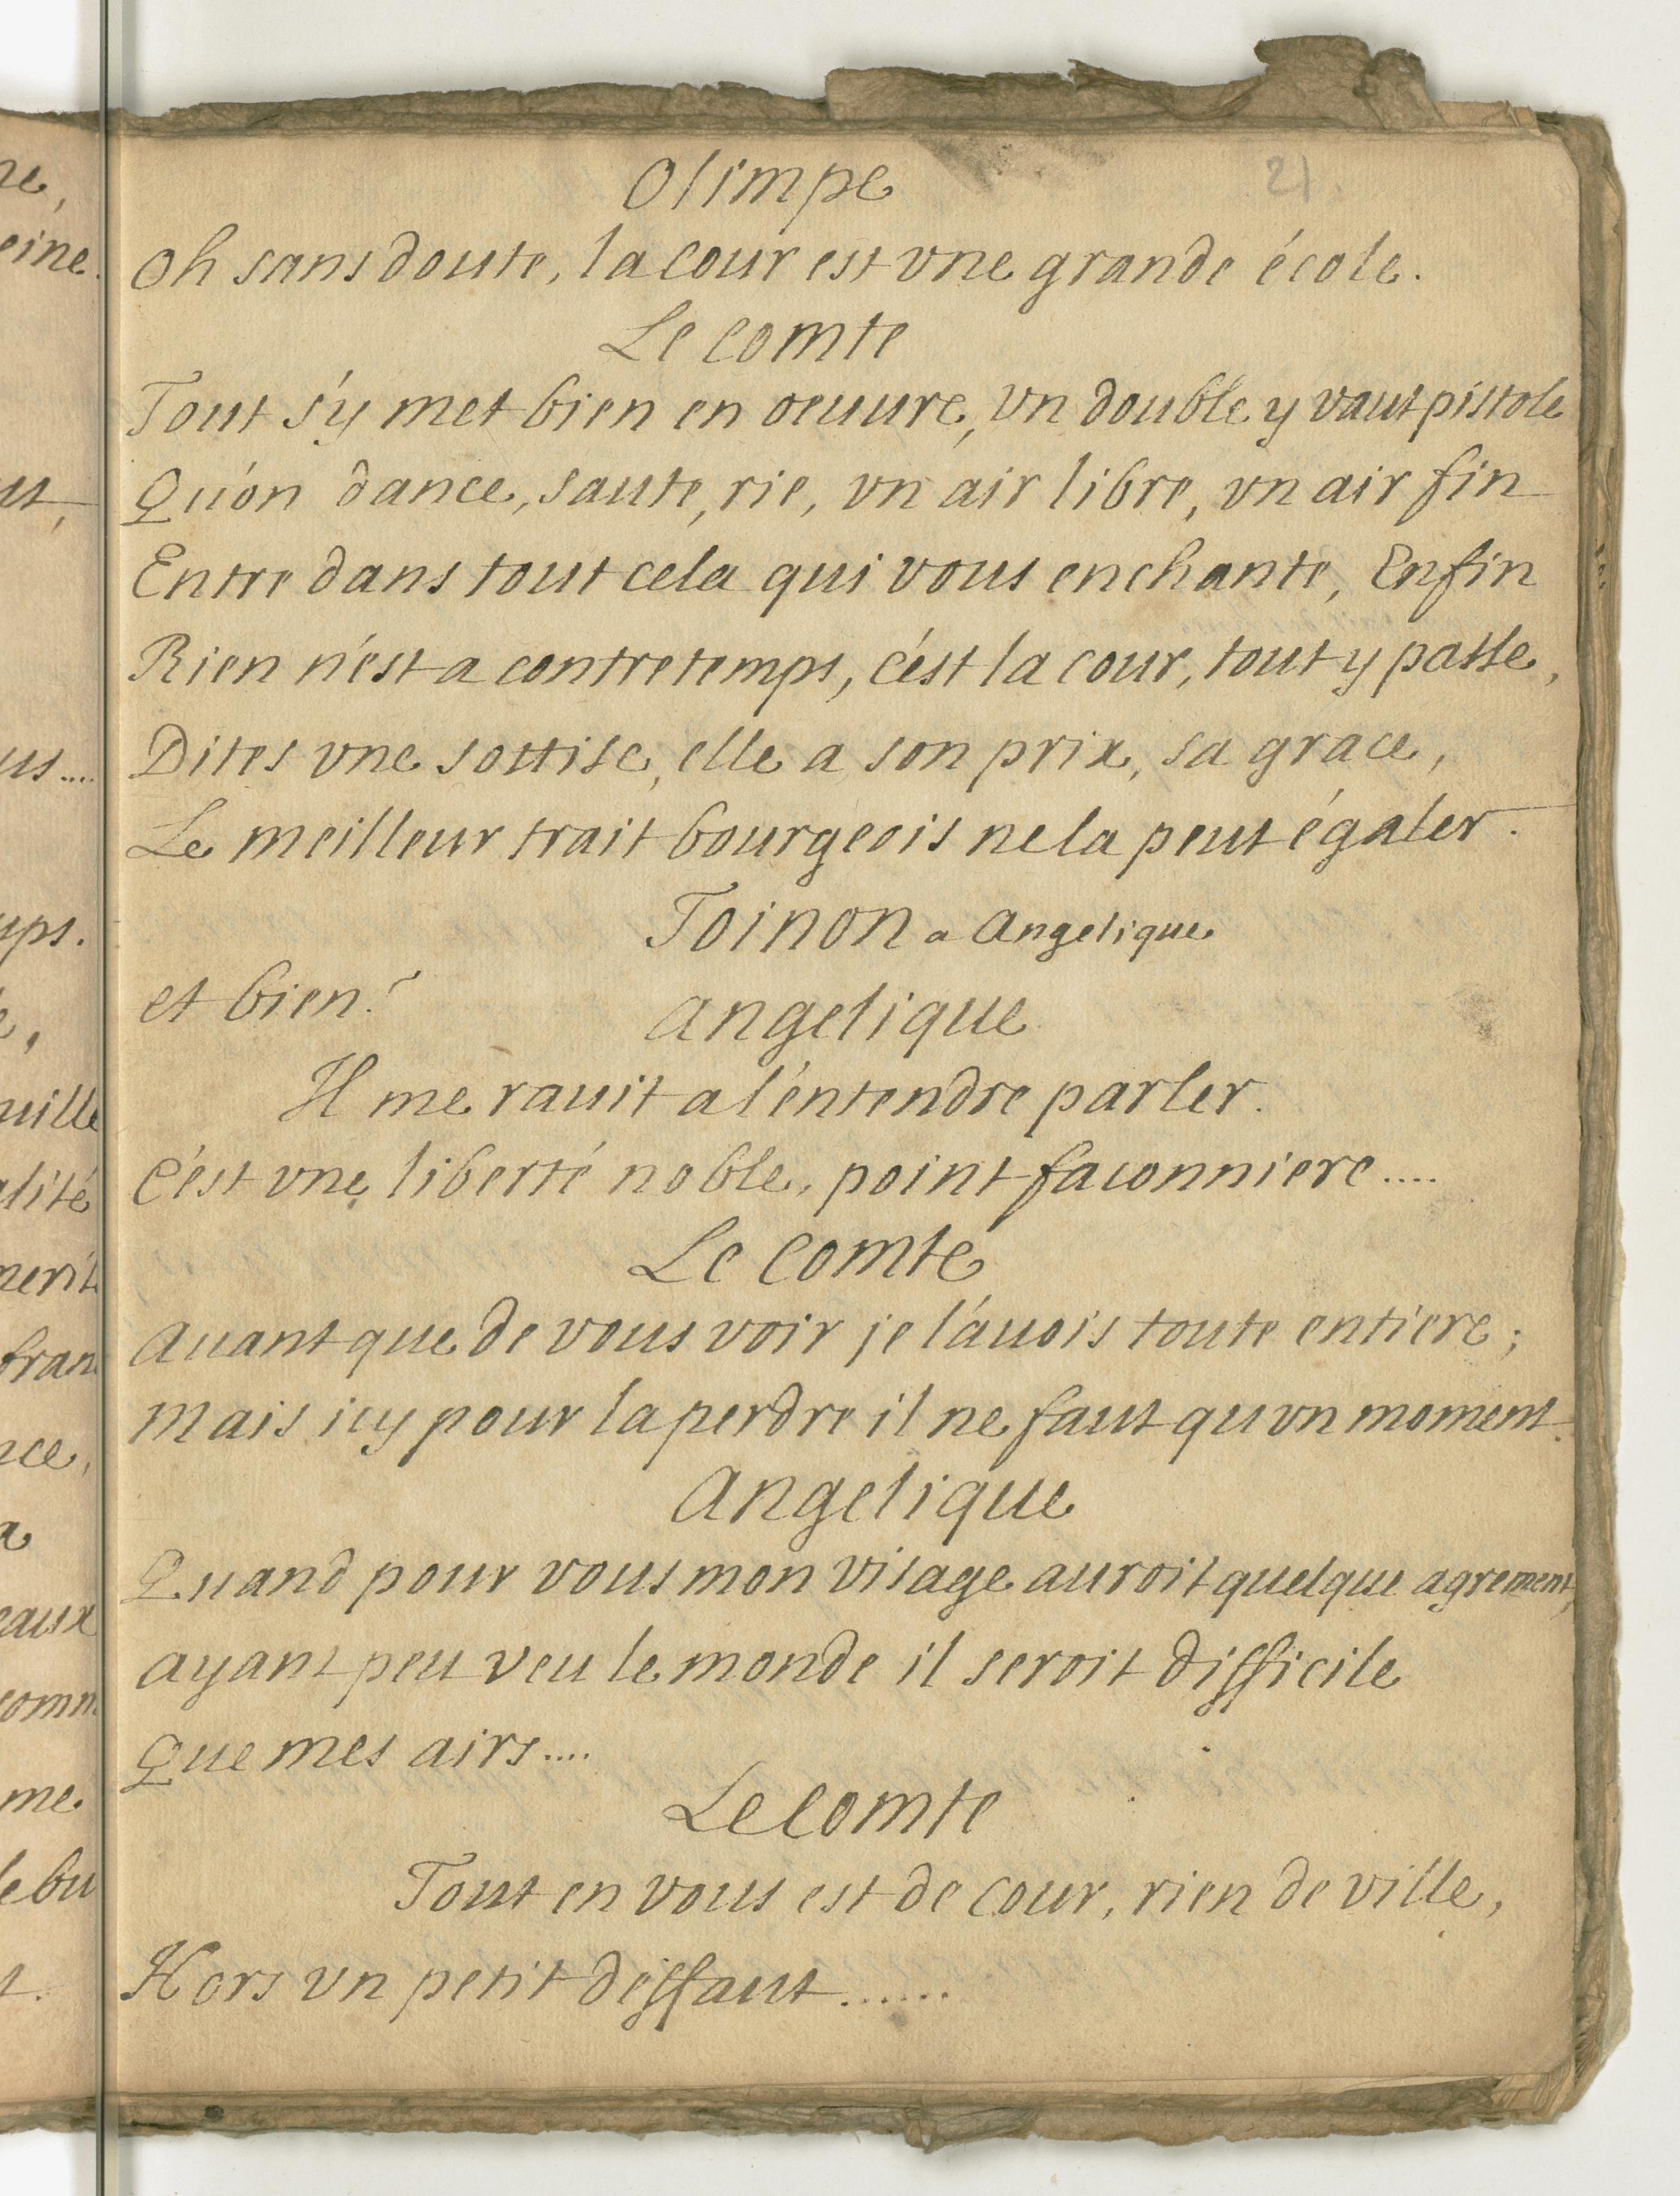 21.
Olimpe
Oh sans doute, la cour est vne grande école.
Le Comte
Tout s'y met bien en oeuure, vn double y vaut pistole
Qu'on dance, saute, rie, vn air libre, vn air fin
Entre dans tout cela qui vous enchante, Enfin
Rien n'est a contretemps, c'est la cour, tout y passe,
Dites vne sottise, elle a son prix, sa grace,
Le meilleur trait bourgeois ne la peut égaler.
Toinon a Angelique
et bien?
Angelique
Il me rauit a l'entendre parler.
C'est vne liberté noble, point faconniere....
Le Comte
Auant que de vous voir je l'auois toute entiere;
Mais icy pour la perdre il ne faut qu'vn moment.
Angelique
Quand pour vous mon visage auroit quelque agrement,
ayant peu veu le monde il seroit difficile
Que mes airs....
Le Comte
Tout en vous est de cour, rien de ville,
Hors vn petit deffaut......